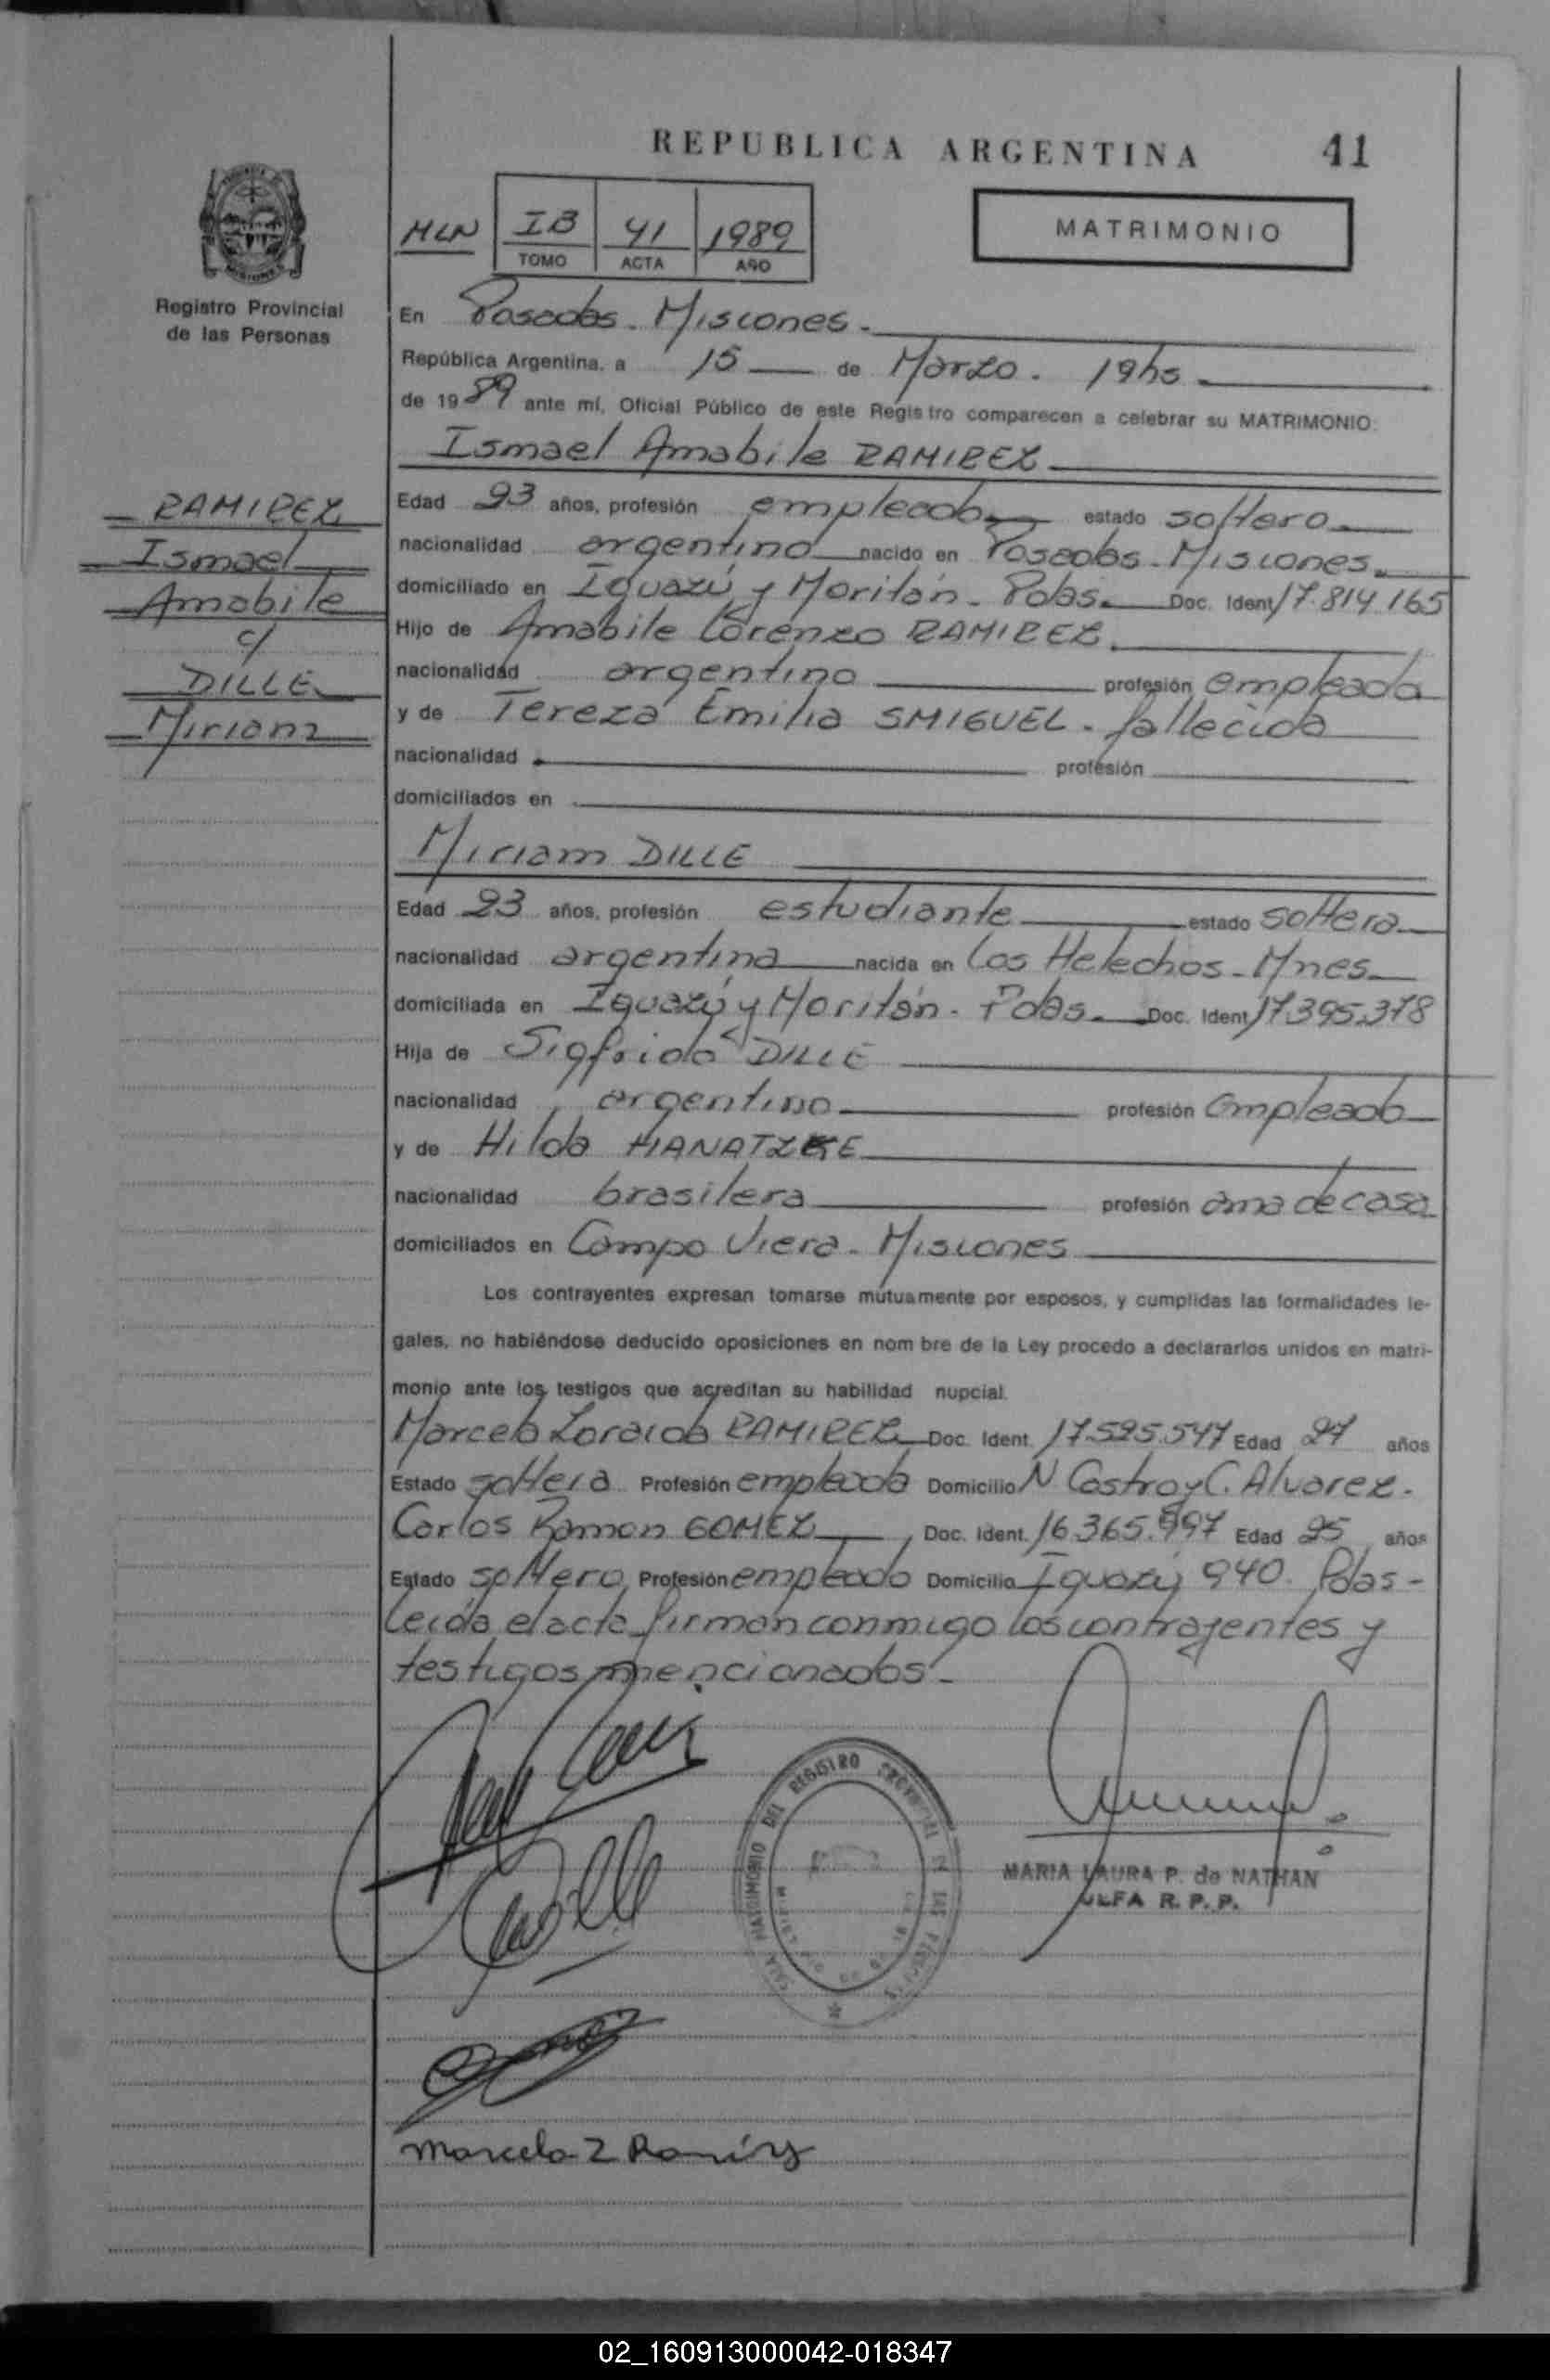 REPUBLICA ARGENTINA 41
MLN IB 41 1989
TOMO ACTA AÑO
MATRIMONIO
Registro Provincial
de las Personas
En Posadas - Misiones.
República Argentina, a 15 de Marzo. 19hs
de 1989 ante mí, Oficial Público de este Registro comparecen a celebrar su MATRIMONIO:
Ismael Amabile RAMIREZ
RAMIREZ
Ismael
Amabile
c/
DILLE
Miriam
Edad 23 años, profesión empleado estado soltero
nacionalidad argentino nacido en Posadas - Misiones.
domiciliado en Iguazú y Moritán - Pdas. Doc. Ident 17.814.165
Hijo de Amabile Lorenzo RAMIREZ.
nacionalidad argentino profesión empleado
y de Tereza Emilia SMIGUEL - fallecida
nacionalidad profesión
domiciliados en
Miriam DILLE
Edad 23 años, profesión estudiante estado soltera
nacionalidad argentina nacida en Los Helechos - Mnes
domiciliada en Iguazú y Moritán - Pdas. Doc. Ident 17.395.378
Hija de Sigfrido DILLE
nacionalidad argentino profesión empleado
y de Hilda
nacionalidad brasilera profesión ama de casa
domiciliados en Campo Viera - Misiones
Los contrayentes expresan tomarse mutuamente por esposos, y cumplidas las formalidades le-
gales, no habiéndose deducido oposiciones en nom bre de la Ley procedo a declararlos unidos en matri-
monio ante los testigos que acreditan su habilidad nupcial.
Marcela Zoraida RAMIREZ Doc. Ident. 17.525.547 Edad años
Estado soltera Profesión empleada Domicilio N Castro y C. Alvarez.
Carlos Ramon GOMEZ Doc. Ident. 16.365.997 Edad 25 años
Estado soltero Profesión empleado Domicilio Iguazú 940. Pdas -
Leída el acta firman conmigo los contrayentes y
testigos mencionados -
DEL REGISTRO PROVINCIAL DE LAS PERSONAS
MATRIMONIO
MARIA LAURA P. de NATHAN
R. P. P.
Marcela Z Ramírez
02_160913000042-018347